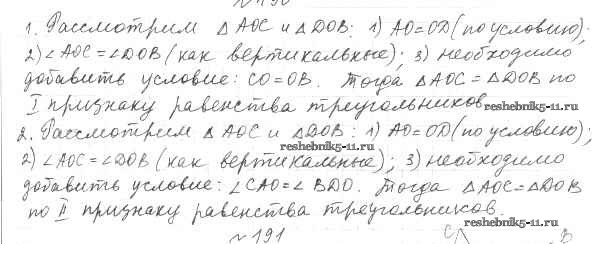 1. Рассмотрим △ AOC и △DOB: 1) AO=OD (по условию);
2) ∠AOC=∠DOB (как вертикальные); 3) необходимо
добавить условие: CO=OB. Тогда △AOC=△DOB по
I признаку равенства треугольников.
reshebnik5-11.ru
2. Рассмотрим △ AOC и △DOB: 1) AO=OD (по условию);
reshebnik5-11.ru
2) ∠AOC=∠DOB (как вертикальные); 3) необходимо
добавить условие: ∠CAO=∠BDO. Тогда △AOC=△DOB
по II признаку равенства треугольников.
reshebnik5-11.ru
№191 C B